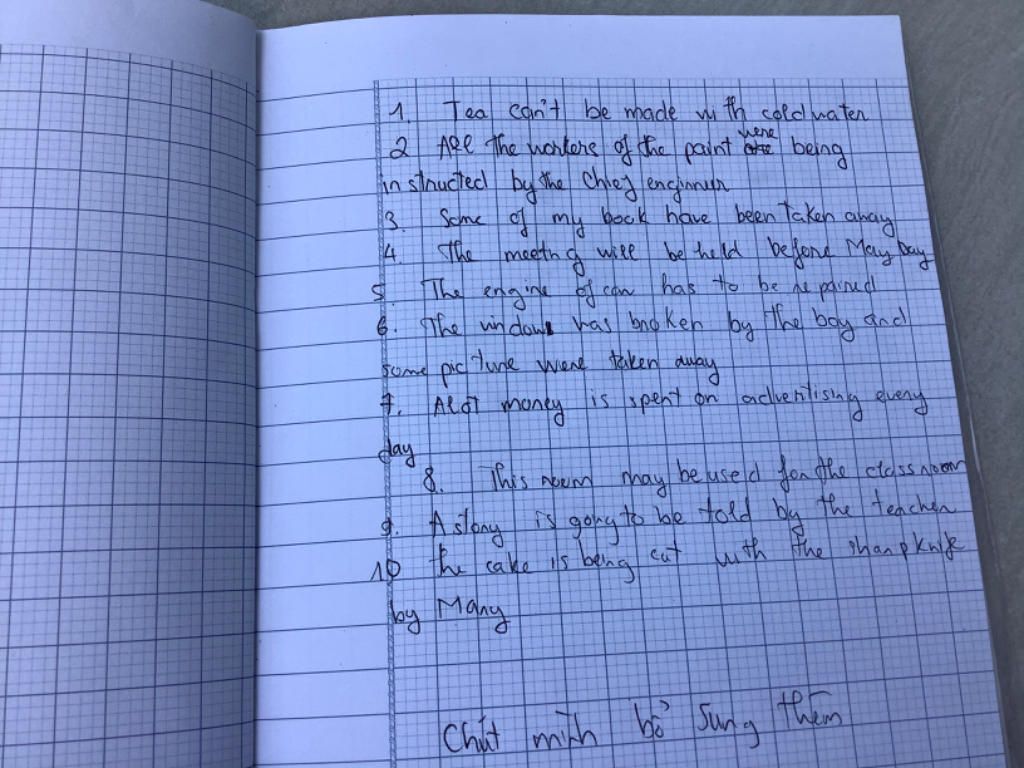 1. Tea can't be made with cold water
2 All the workers of the paint were are being
instructed by the chief enginner
3. Some of my book have been taken away
4. The meeting will be held before May Day
5. The engine of car has to be repaired
6. The window was broken by the boy and
some picture were taken away
7. Alot money is spent on advertising every
day
8. This room may be used for the classroom
9. A story is going to be told by the teacher
10 the cake is being cut with the sharp knife
by Mary
Chút mình bổ sung thêm